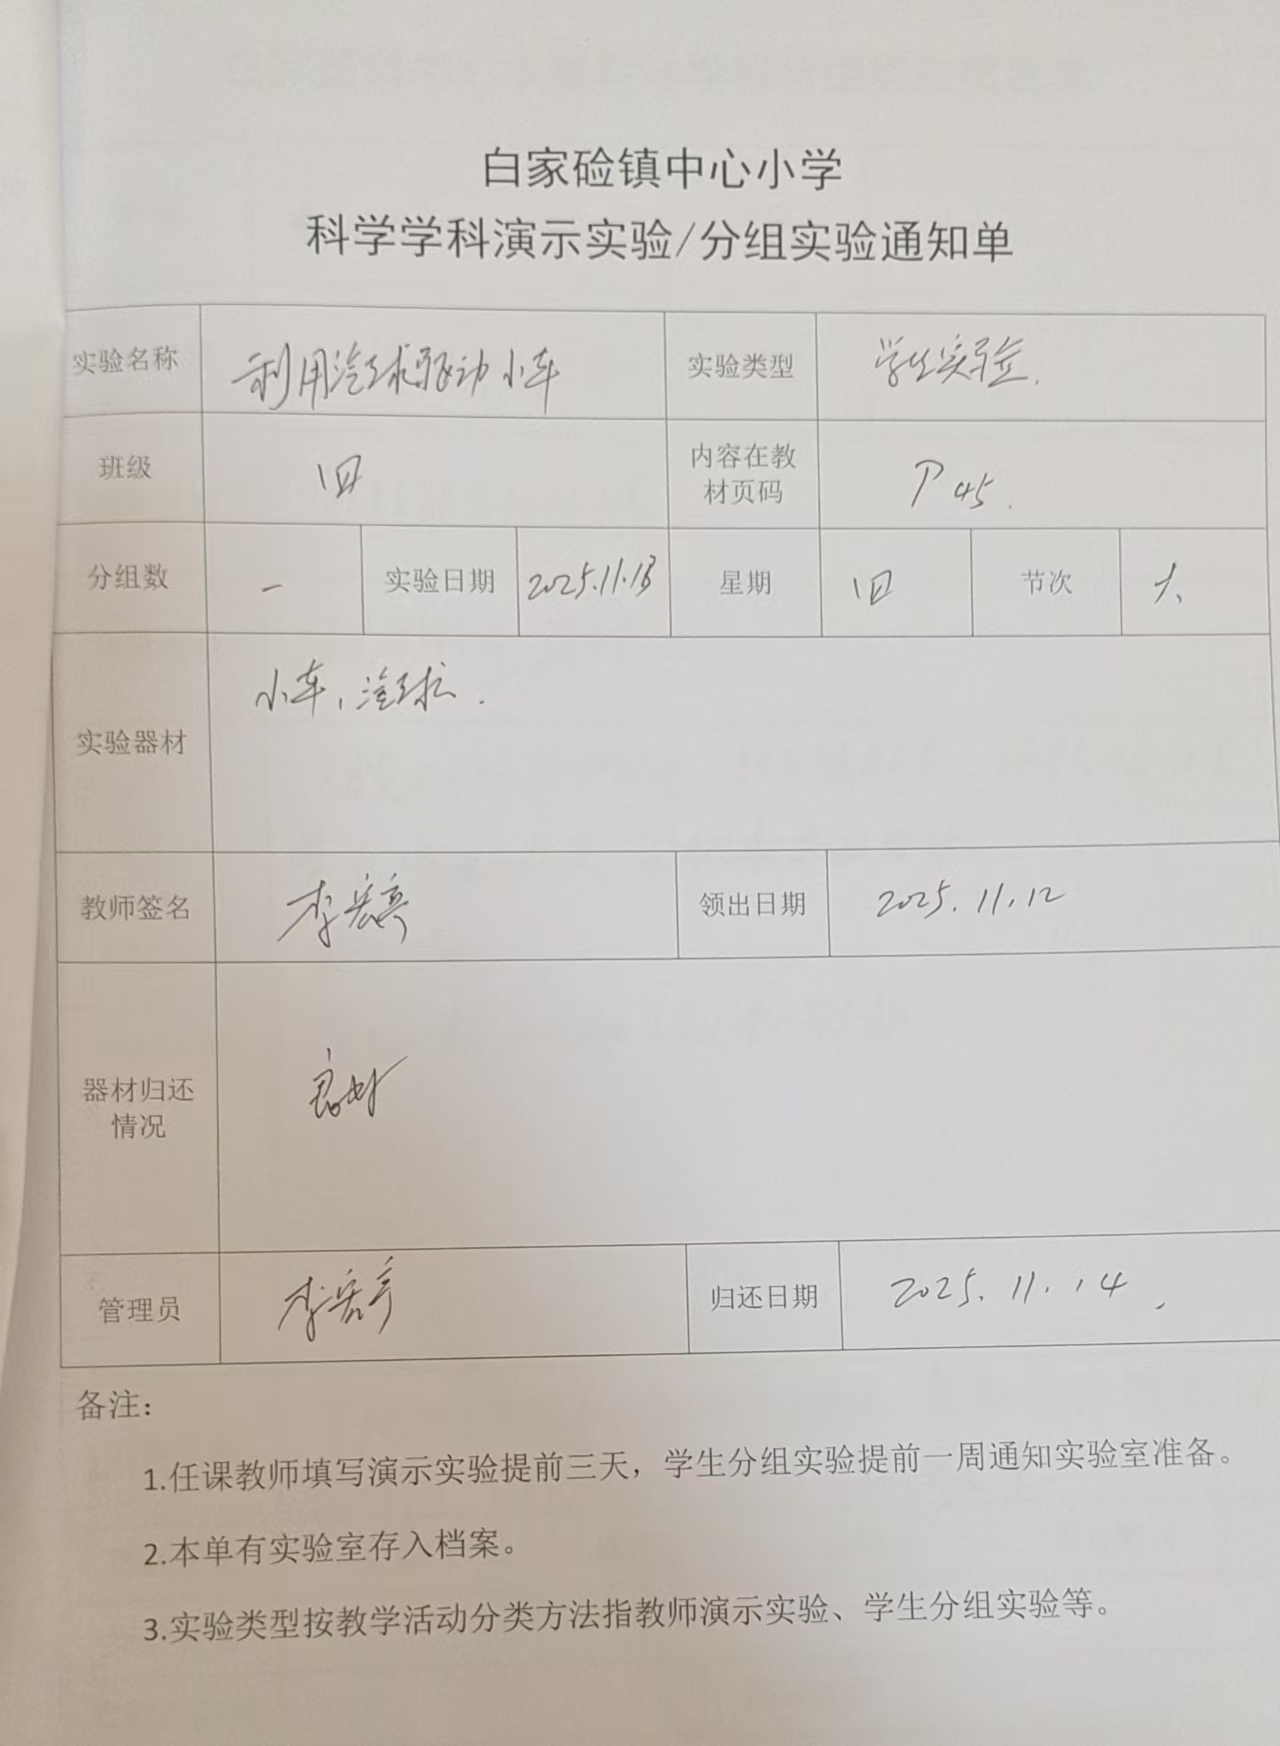 白家硷镇中心小学
科学学科演示实验/分组实验通知单
实验名称 利用汽球驱动小车 实验类型 学生实验.
班级 四 内容在教材页码 P45.
分组数 一 实验日期 2025.11.13 星期 四 节次 六
实验器材 小车,汽球.
教师签名 李宏亮 领出日期 2025.11.12
器材归还情况 良好
管理员 归还日期 2025.11.14
备注:
1.任课教师填写演示实验提前三天，学生分组实验提前一周通知实验室准备。
2.本单有实验室存入档案。
3.实验类型按教学活动分类方法指教师演示实验、学生分组实验等。